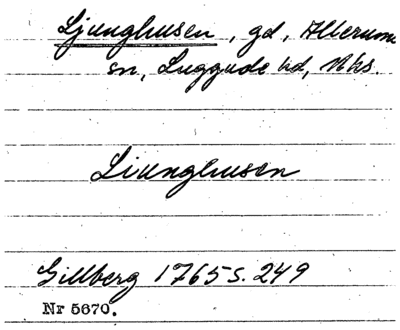 Ljunghusen, gd, Allerums
sn, Luggude hd, Mhs.
Liunghusen
Gillberg 1765 s. 249
Nr 5670.